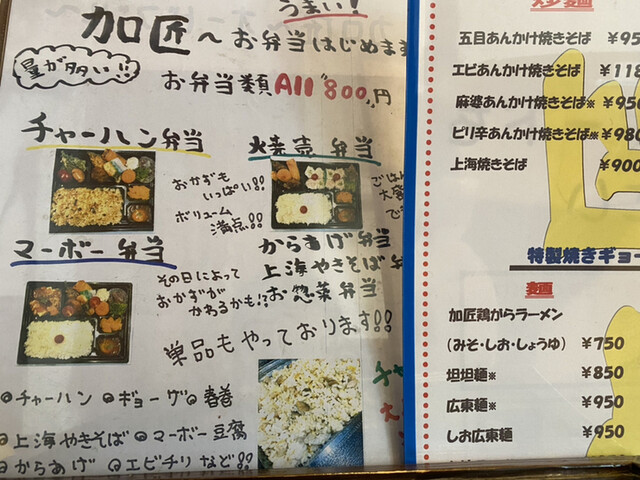 うまい!
加匠～お弁当はじめます
量が多い!!
お弁当類All 800円
チャーハン弁当
おかずも
いっぱい!!
ボリューム
満点!!
焼売 弁当
ごはん
大盛
マーボー弁当
その日によって
おかずが
かわるかも!?
からあげ弁当
上海やきそば弁
お惣菜弁当
単品もやっております!!
◎チャーハン ◎ギョーザ ◎春巻
◎上海やきそば ◎マーボー豆腐
◎からあげ ◎エビチリ など!!
五目あんかけ焼きそば ¥95
エビあんかけ焼きそば ¥118
麻婆あんかけ焼きそば※ ¥950
ピリ辛あんかけ焼きそば※ ¥980
上海焼きそば ¥900
特製焼きギョー
加匠鶏がらラーメン
(みそ・しお・しょうゆ) ¥750
坦坦麺※ ¥850
広東麺※ ¥950
しお広東麺 ¥950